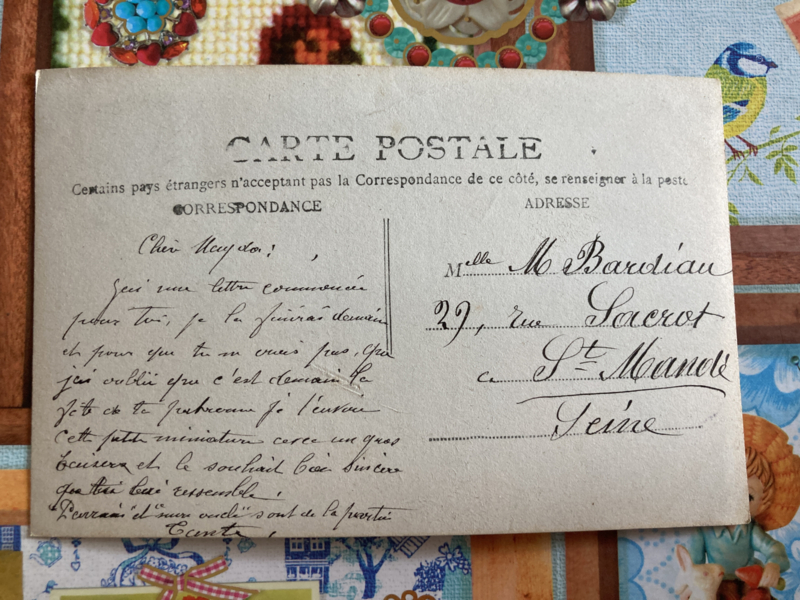 CARTE POSTALE
Certains pays étrangers n'acceptant pas la Correspondance de ce côté, se renseigner à la poste
CORRESPONDANCE
ADRESSE
J'ai une lettre commencée
pour toi, je la finirai demain
et pour que tu ne crois pas, que
j'ai oublié que c'est demain la
fête de ta patronne je t'envoie
cette petite miniature avec un gros
baiser et le souhait bien sincère
que tu lui ressemble.
sont de la partie
Melle M Bardiau
29, rue Sacrot
a St-Mandé
Seine